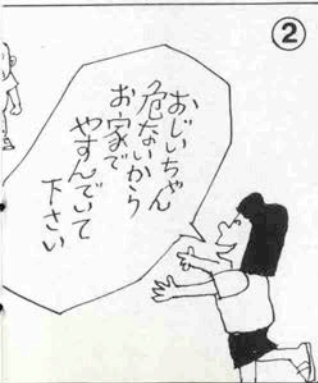 ②
おじいちゃん
危ないから
お家で
やすんでいて
下さい